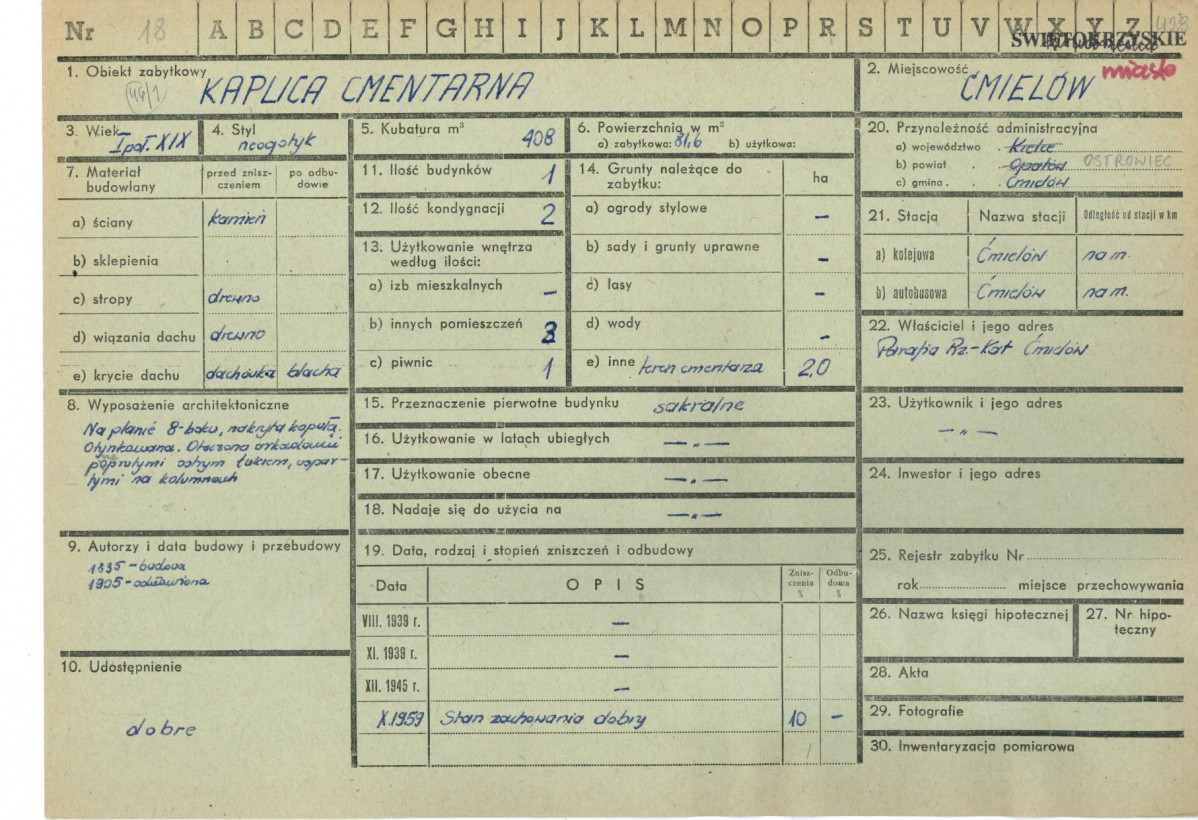 Nr 18 A B C D E F G H I J K L M N O P R S T U V W X Y Z
ŚWIĘTOKRZYSKIE
1. Obiekt zabytkowy
44/1 KAPLICA CMENTARNA
2. Miejscowość miasto
ĆMIELÓW
3. Wiek
I poł. XIX
4. Styl
neogotyk
5. Kubatura m³
408
6. Powierzchnia w m²
a) zabytkowa: 81,6 b) użytkowa:
20. Przynależność administracyjna
a) województwo . Kielce
b) powiat . Opatów OSTROWIEC
c) gmina . . Ćmielów
7. Materiał budowlany
przed zniszczeniem
po odbudowie
a) ściany kamień
b) sklepienia
c) stropy drewno
d) wiązania dachu drewno
e) krycie dachu dachówka blacha
11. Ilość budynków 1
12. Ilość kondygnacji 2
13. Użytkowanie wnętrza
według ilości:
a) izb mieszkalnych –
b) innych pomieszczeń 3
c) piwnic 1
14. Grunty należące do
zabytku: ha
a) ogrody stylowe –
b) sady i grunty uprawne –
c) lasy –
d) wody –
e) inne teren cmentarza 2,0
21. Stacja Nazwa stacji Odległość od stacji w km
a) kolejowa Ćmielów na m.
b) autobusowa Ćmielów na m.
22. Właściciel i jego adres
Parafia Rz-Kat Ćmielów
8. Wyposażenie architektoniczne
Na planie 8-boku, nakryta kopułą.
Otynkowana. Otoczona arkadami
poprutymi ostrym łukiem, wspar-
tymi na kolumnach
15. Przeznaczenie pierwotne budynku sakralne
16. Użytkowanie w latach ubiegłych —„—
17. Użytkowanie obecne —„—
18. Nadaje się do użycia na —„—
23. Użytkownik i jego adres
—„—
24. Inwestor i jego adres
9. Autorzy i data budowy i przebudowy
1835 - budowa
1905 - odnowiona
19. Data, rodzaj i stopień zniszczeń i odbudowy
Data OPIS Zniszczenia % Odbudowa %
VIII. 1939 r. –
XI. 1939 r. –
XII. 1945 r. –
X.1959 Stan zachowania dobry 10 –
10. Udostępnienie
dobre
25. Rejestr zabytku Nr
rok miejsce przechowywania
26. Nazwa księgi hipotecznej
27. Nr hipo-
teczny
28. Akta
29. Fotografie
30. Inwentaryzacja pomiarowa